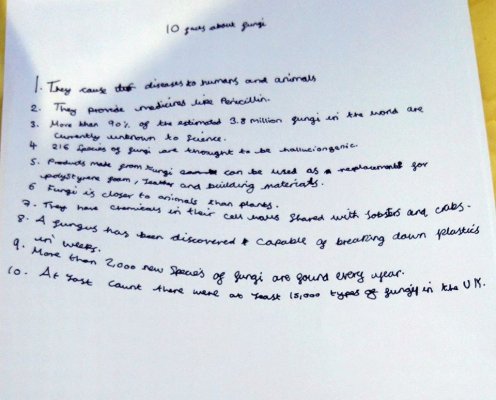 10 facts about fungi
1. They cause diseases to humans and animals
2. They provide medicines like Penicillin.
3. More than 90% of the estimated 3.8 million fungi in the world are
currently unknown to Science.
4 216 Species of fungi are thought to be halluciongenic.
5. Products made from fungi can be used as a replacement for
polystyrene foam, leather and building materials.
6 Fungi is closer to animals than plants.
7. They have chemicals in their cell walls shared with lobsters and cabs.
8. A fungus has been discovered capable of breaking down plastics
in weeks.
9. More than 2,000 new Species of fungi are found every year.
10. At last count there were at least 15,000 types of fungi in the UK.